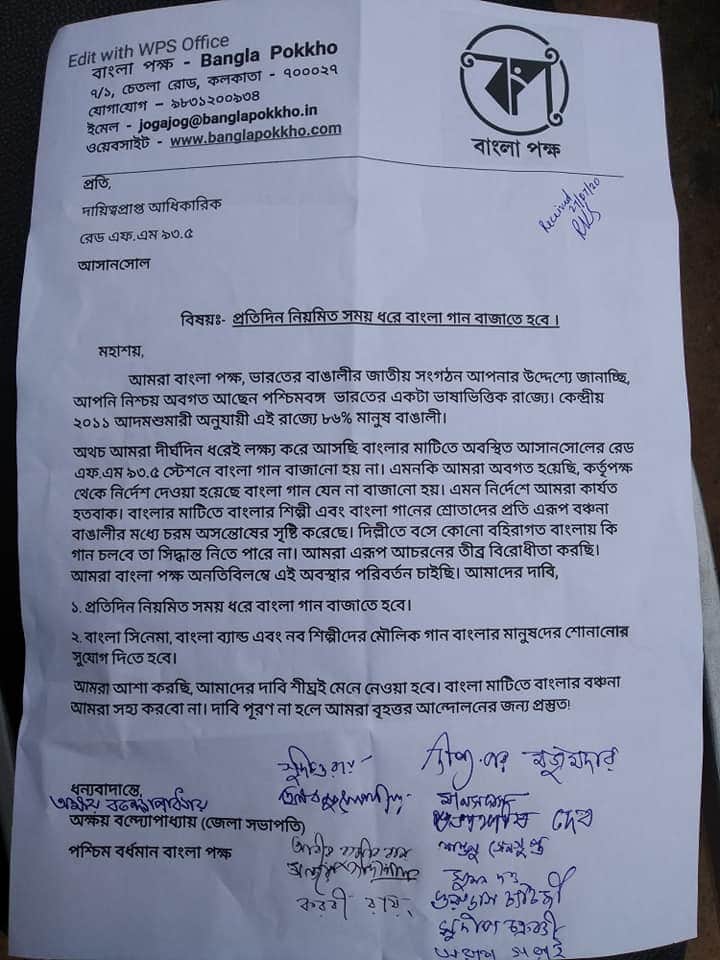 Edit with WPS Office
বাংলা পক্ষ - Bangla Pokkho
৭/১, চেতলা রোড, কলকাতা - ৭০০০২৭
যোগাযোগ – ৯৮৩১২০০৯৩৪
ইমেল - jogajog@banglapokkho.in
ওয়েবসাইট - www.banglapokkho.com
বাংলা পক্ষ
প্রতি,
দায়িত্বপ্রাপ্ত আধিকারিক
রেড এফ.এম ৯৩.৫
আসানসোল
Received
27/07/20
বিষয়ঃ- প্রতিদিন নিয়মিত সময় ধরে বাংলা গান বাজাতে হবে ।
মহাশয়,
আমরা বাংলা পক্ষ, ভারতের বাঙালীর জাতীয় সংগঠন আপনার উদ্দেশ্যে জানাচ্ছি,
আপনি নিশ্চয় অবগত আছেন পশ্চিমবঙ্গ ভারতের একটা ভাষাভিত্তিক রাজ্যে। কেন্দ্রীয়
২০১১ আদমশুমারী অনুযায়ী এই রাজ্যে ৮৬% মানুষ বাঙালী।
অথচ আমরা দীর্ঘদিন ধরেই লক্ষ্য করে আসছি বাংলার মাটিতে অবস্থিত আসানসোলের রেড
এফ.এম ৯৩.৫ স্টেশনে বাংলা গান বাজানো হয় না। এমনকি আমরা অবগত হয়েছি, কর্তৃপক্ষ
থেকে নির্দেশ দেওয়া হয়েছে বাংলা গান যেন না বাজানো হয়। এমন নির্দেশে আমরা কার্যত
হতবাক। বাংলার মাটিতে বাংলার শিল্পী এবং বাংলা গানের শ্রোতাদের প্রতি এরূপ বঞ্চনা
বাঙালীর মধ্যে চরম অসন্তোষের সৃষ্টি করেছে। দিল্লীতে বসে কোনো বহিরাগত বাংলায় কি
গান চলবে তা সিদ্ধান্ত নিতে পারে না। আমরা এরূপ আচরনের তীব্র বিরোধীতা করছি।
আমরা বাংলা পক্ষ অনতিবিলম্বে এই অবস্থার পরিবর্তন চাইছি। আমাদের দাবি,
১. প্রতিদিন নিয়মিত সময় ধরে বাংলা গান বাজাতে হবে।
২. বাংলা সিনেমা, বাংলা ব্যান্ড এবং নব শিল্পীদের মৌলিক গান বাংলার মানুষদের শোনানোর
সুযোগ দিতে হবে।
আমরা আশা করছি, আমাদের দাবি শীঘ্রই মেনে নেওয়া হবে। বাংলা মাটিতে বাংলার বঞ্চনা
আমরা সহ্য করবো না। দাবি পূরণ না হলে আমরা বৃহত্তর আন্দোলনের জন্য প্রস্তুত!
মজুমদার
ধন্যবাদান্তে,
অক্ষয় বন্দ্যোপাধ্যায়
দেব
অক্ষয় বন্দ্যোপাধ্যায় (জেলা সভাপতি)
সেনগুপ্ত
পশ্চিম বর্ধমান বাংলা পক্ষ
সুমন দত্ত
করবী রায়
গুরুদাস চ্যাটার্জী
সুদীপ চক্রবর্তী